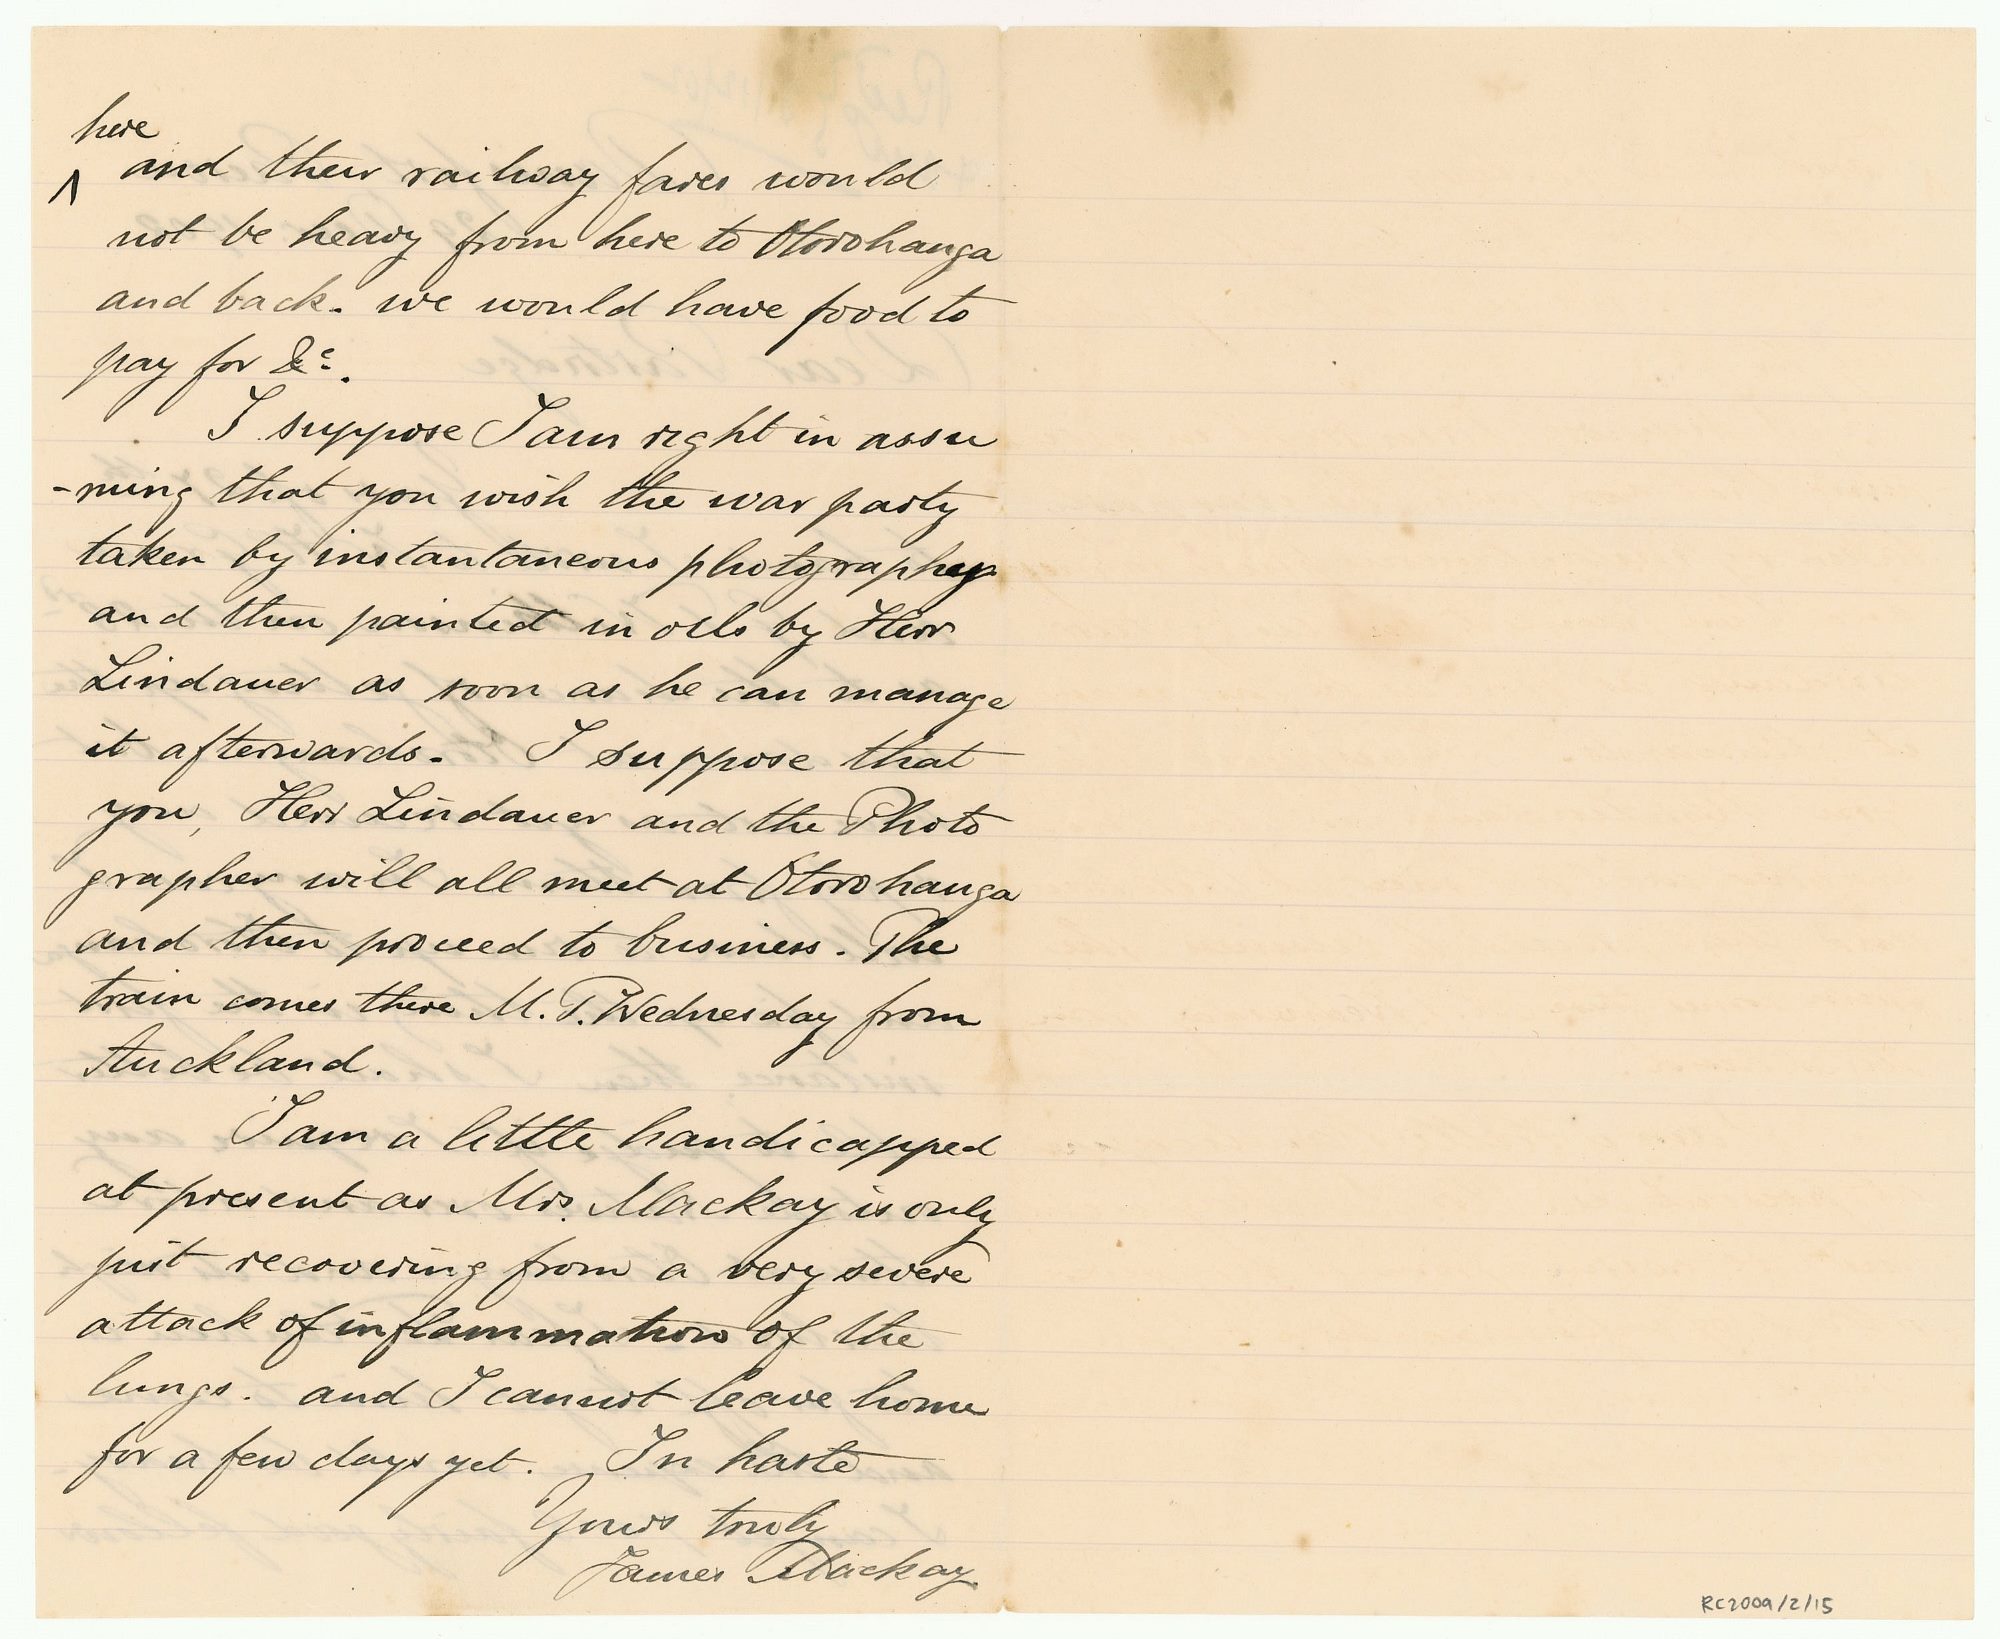 here
^ and their railway fares would
not be heavy from here to Otorohanga
and back. we would have food to
pay for &c.
I suppose I am right in assu
-ming that you wish the war party
taken by instantaneous photography
and then painted in oils by Herr
Lindauer as soon as he can manage
it afterwards. I suppose that
you, Herr Lindauer and the Photo
grapher will all meet at Otorohanga
and then proceed to business. The
train comes there M. T. Wednesday from
Auckland.
I am a little handicapped
at present as Mrs. Mackay is only
just recovering from a very severe
attack of inflammation of the
lungs. and I cannot leave home
for a few days yet. In haste
Yours truly
James Mackay.
RC2009/2/15